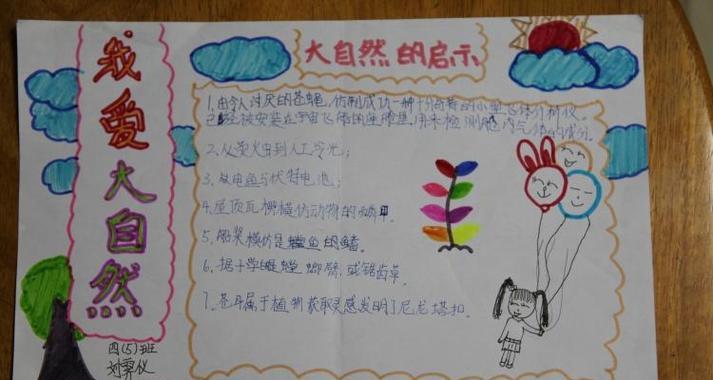 我爱大自然
大自然的启示
1、由令人讨厌的苍蝇,仿制成功一种十分奇特的小型气体分析仪。
已经被安装在宇宙飞船的座舱里,用来检测舱内气体的成分。
2、从萤火虫到人工冷光;
3、从电鱼与伏特电池;
4、屋顶瓦楞模仿动物的鳞甲。
5、船桨模仿是鱼的鳍。
6、据十学螳螂臂,或锯齿草。
7、苍耳属于植物获取灵感发明了尼龙塔扣。
四(5)班